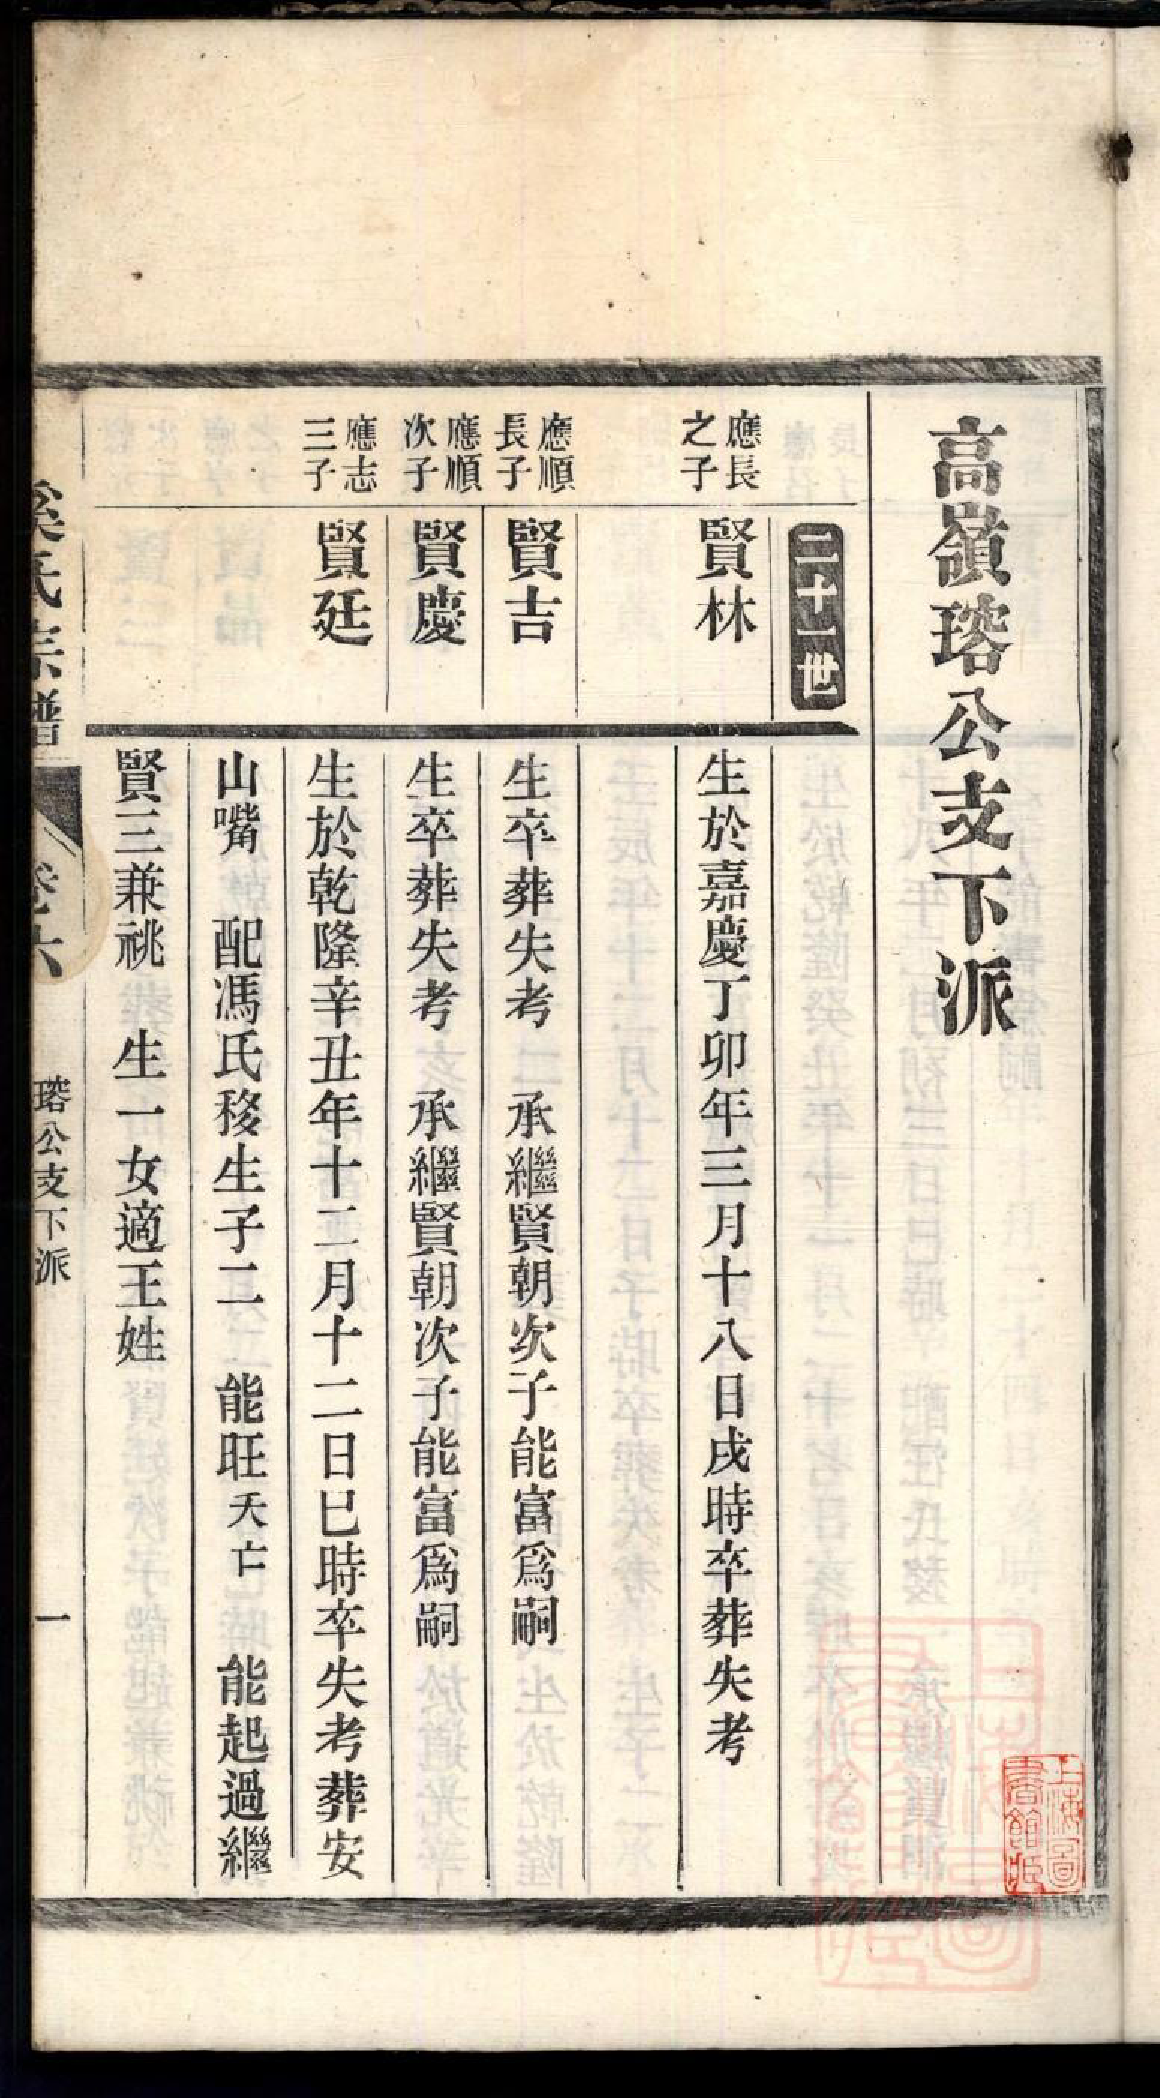 高嶺瑢公支下派
二十一世
應長
之子
賢林
生於嘉慶丁卯年三月十八日戌時卒葬失考
應順
長子
賢吉
生卒葬失考 承繼賢朝次子能富爲嗣
應順
次子
賢慶
生卒葬失考 承繼賢朝次子能富爲嗣
應志
三子
賢廷
生於乾隆辛丑年十二月十二日巳時卒失考葬安
山嘴 配馮氏移生子二 能旺夭亡 能起過繼
賢三兼祧 生一女適王姓
奚氏宗譜
卷六
瑢公支下派
一
上海圖書館藏